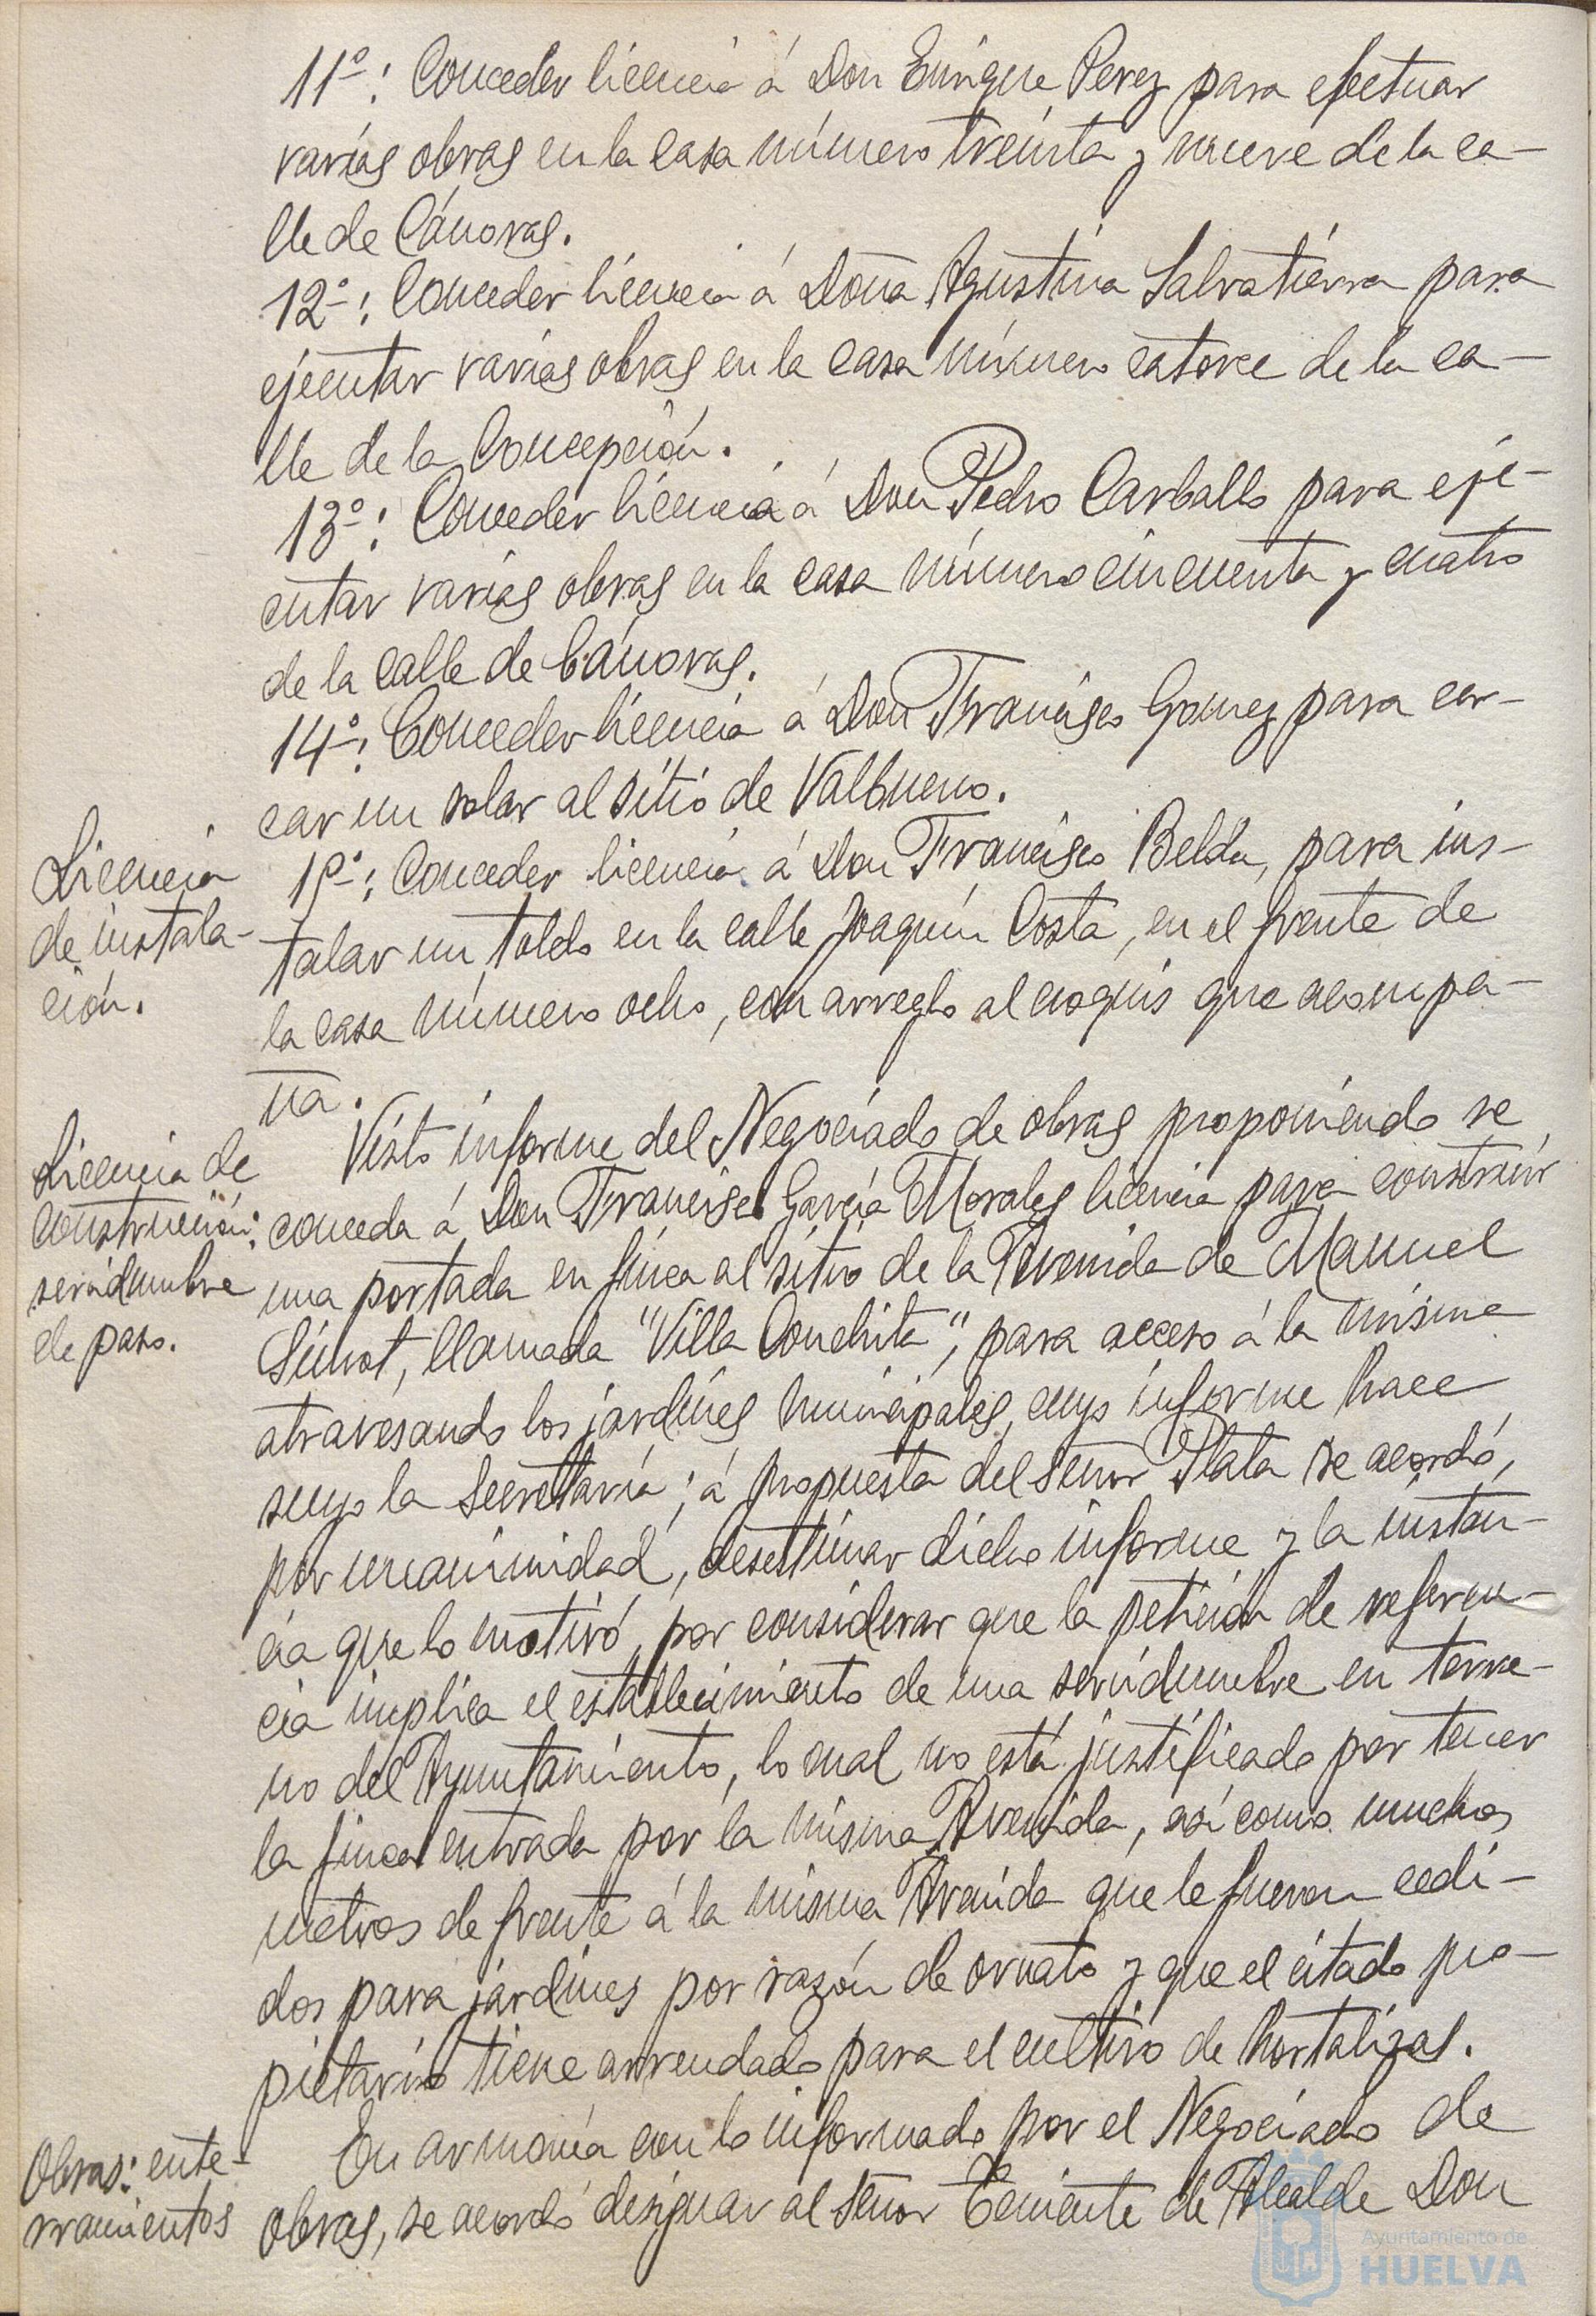 11º: Conceder licencia á Don Enrique Perez para efectuar
varias obras en la casa número treinta y nueve de la ca-
lle de Cánovas.
12º: Conceder licencia á Doña Agustina Salvatierra para
ejecutar varias obras en la casa número catorce de la ca-
lle de la Concepción.
13º: Conceder licencia á Don Pedro Carballo para eje-
cutar varias obras en la casa número cincuenta y cuatro
de la calle de Cánovas.
14º: Conceder licencia á Don Francisco Gomez para cer-
car un solar al sitio de Valbueno.
Licencia
de instala-
ción.
1º: Conceder licencia á Don Francisco Belda, para ins-
talar un toldo en la calle Joaquín Costa, en el frente de
la casa número ocho, con arreglo al croquis que acompa-
ña.
Licencia de
construcción:
servidumbre
de paso.
Visto informe del Negociado de obras proponiendo se
conceda á Don Francisco García Morales licencia para construir
una portada en finca al sitio de la Avenida de Manuel
Siurot, llamada "Villa Conchita", para acceso á la misma
atravesando los jardines municipales, cuyo informe hace
suyo la Secretaría; á propuesta del señor Plata se acordó,
por unanimidad, desestimar dicho informe y la instan-
cia que lo motivó, por considerar que la petición de referen-
cia implica el establecimiento de una servidumbre en terre-
no del Ayuntamiento, lo cual no está justificado por tener
la finca entrada por la misma Avenida, así como muchos
metros de frente á la misma Avenida que le fueron cedi-
dos para jardines por razón de ornato y que el citado pro-
pietario tiene arrendado para el cultivo de hortalizas.
Obras: ente-
rramientos
En armonía con lo informado por el Negociado de
obras, se acordó designar al señor Teniente de Alcalde Don
Ayuntamiento de
HUELVA